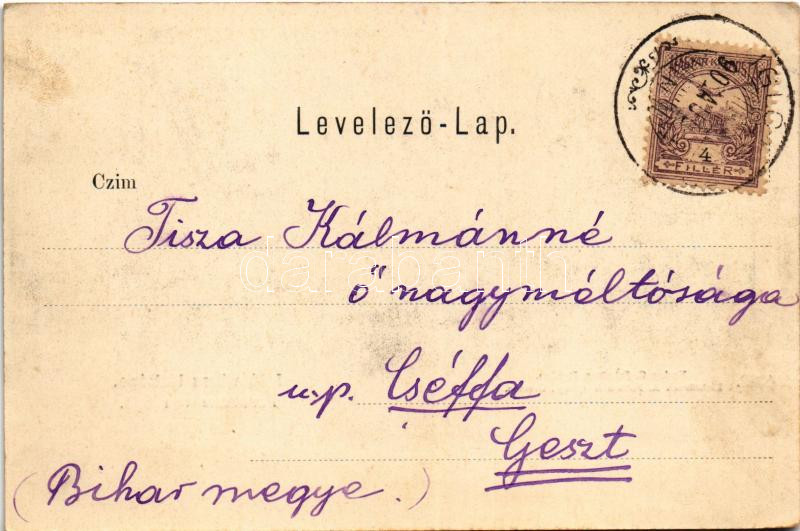 Levelező-Lap.
Czim
Tisza Kálmánné
ő nagyméltósága
u.p. Cséffa
Geszt
(Bihar megye.)
4
FILLÉR
darabanth